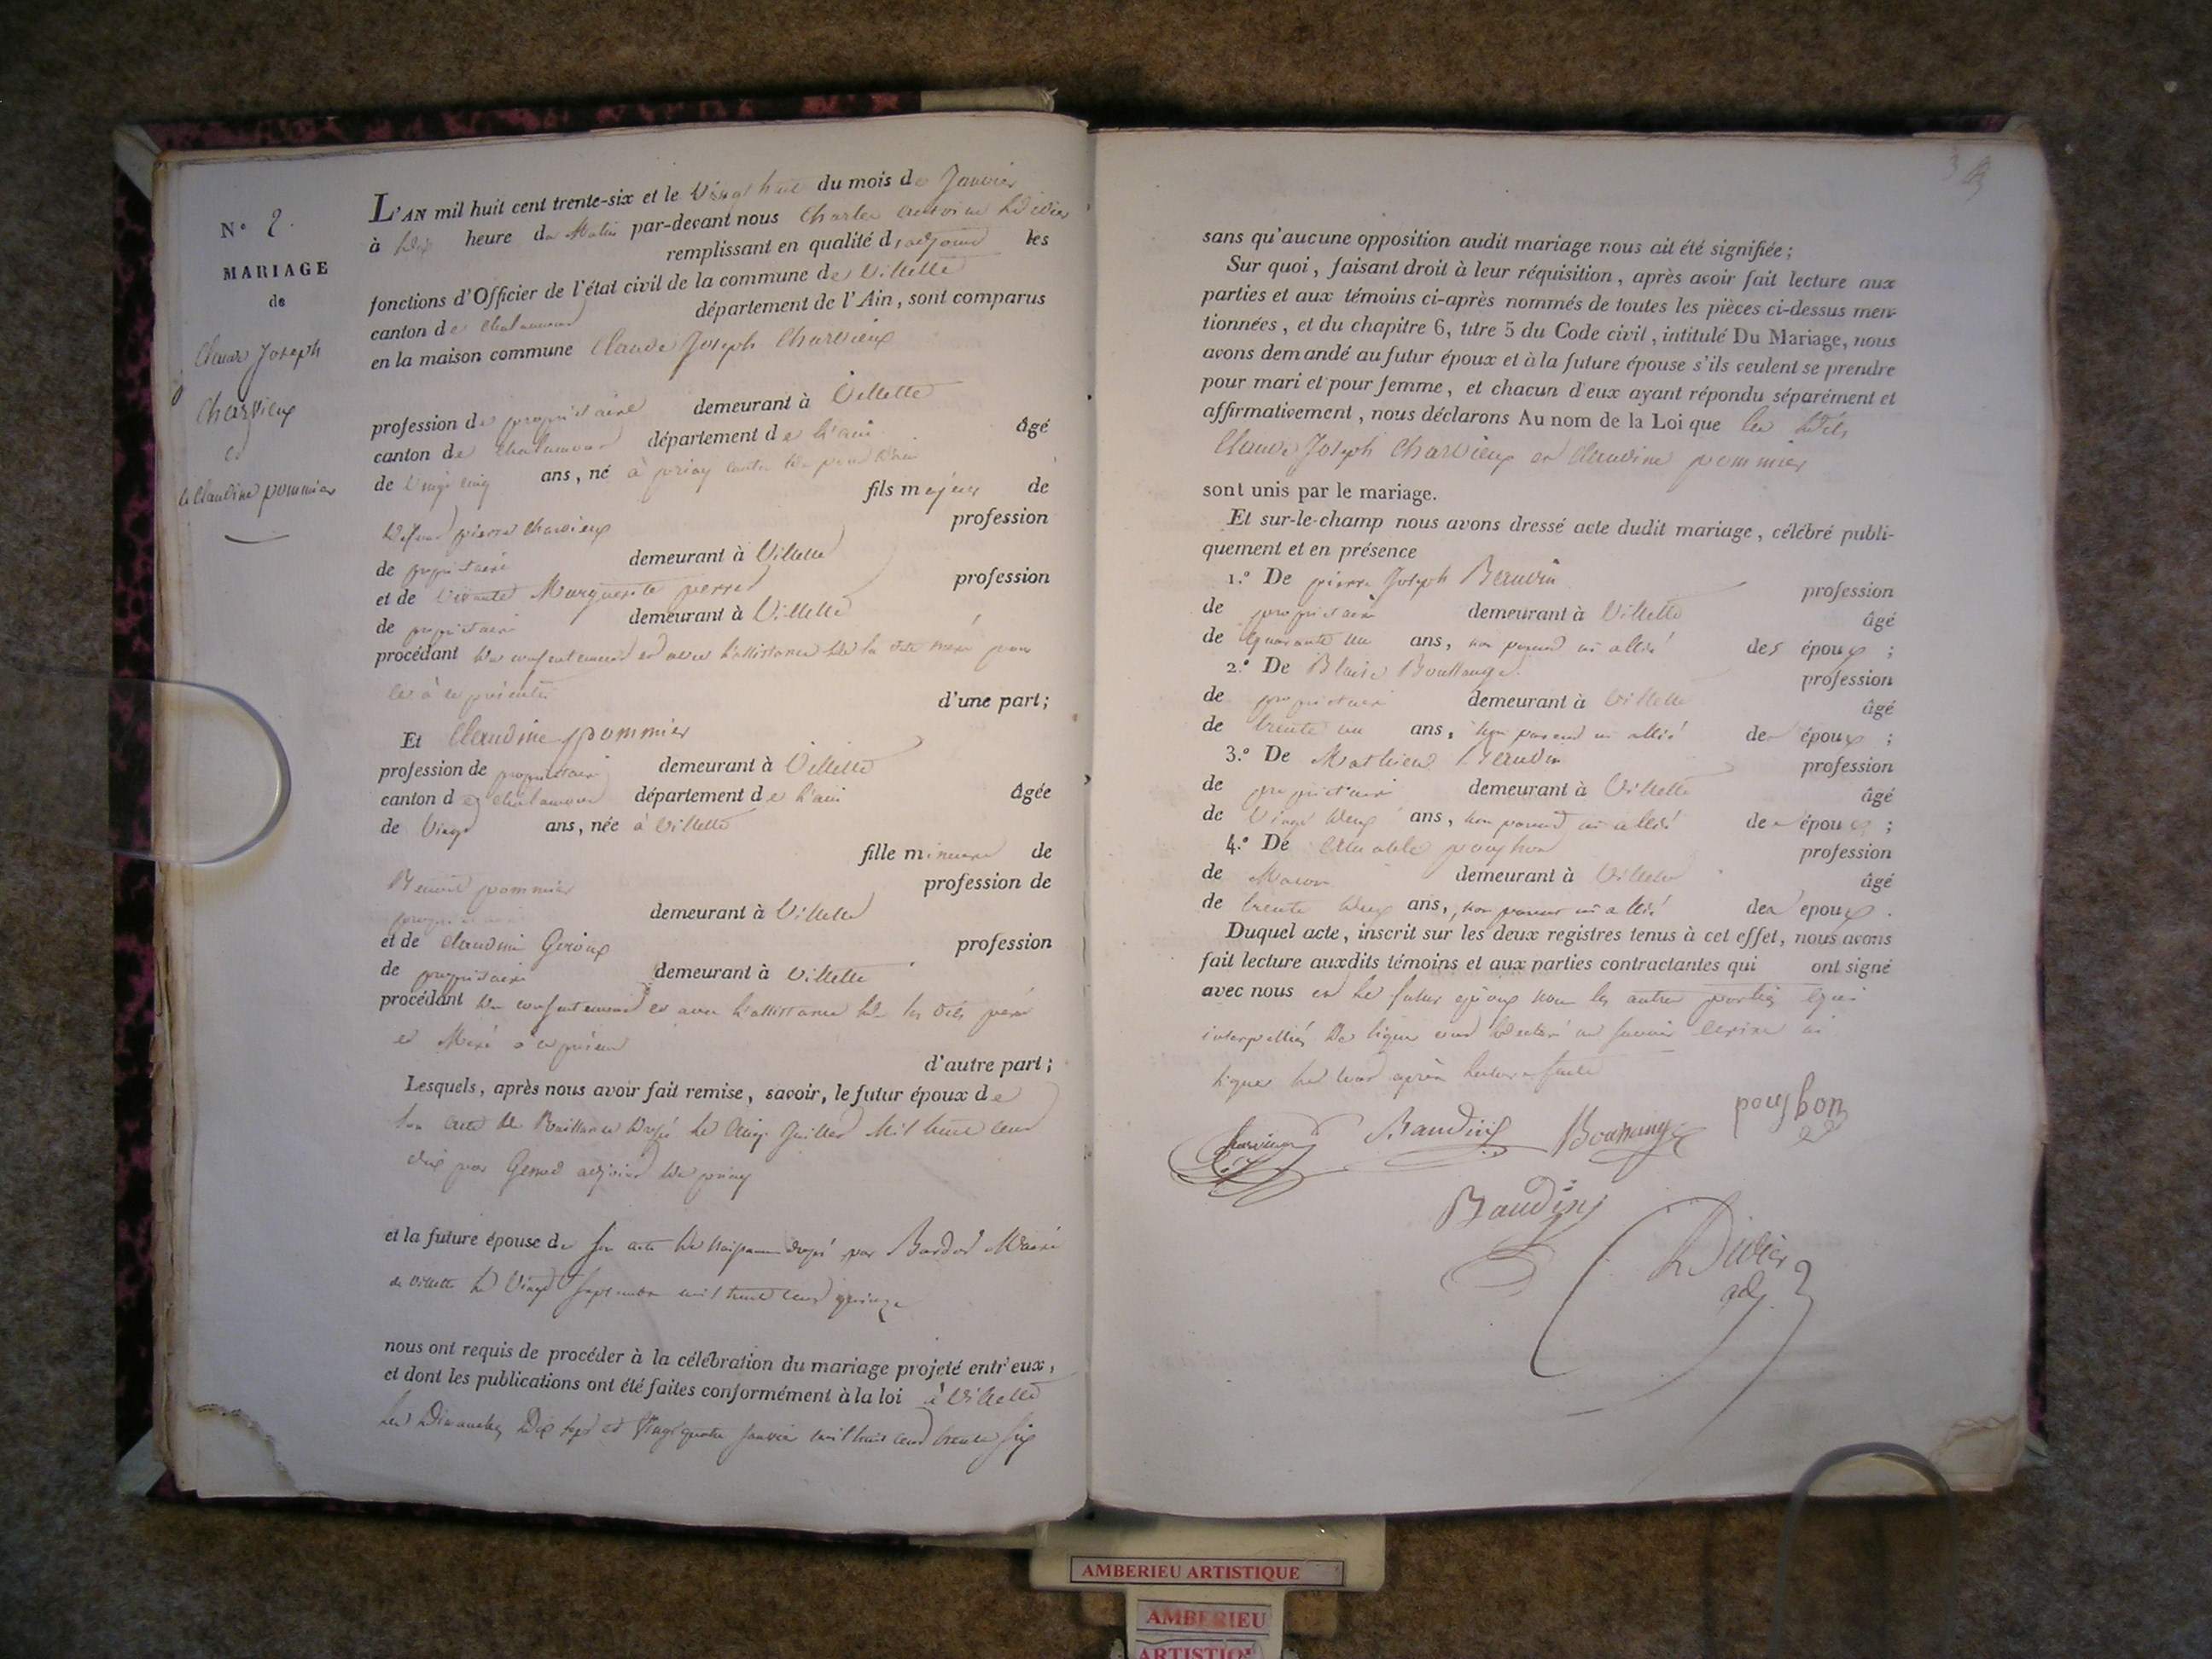 N.° 2.
MARIAGE
de
Claude Joseph
Charvieux
et
de Claudine pommier
L'AN mil huit cent trente-six et le Vingt huit du mois de Janvier
à dix heure du Matin par-devant nous Charles antoine Didier
remplissant en qualité d'adjoint les
fonctions d'Officier de l'état civil de la commune de Villette
canton de chalamont département de l'Ain, sont comparus
en la maison commune Claude Joseph Charvieux
profession de propriétaire demeurant à Villette
canton de Chalamont département de l'ain âgé
de Vingt cinq ans, né à priay canton de pont d'ain
fils majeur de
defunt pierre Charvieux profession
de propriétaire demeurant à Villette
et de vivante Marguerite perret profession
de propriétaire demeurant à Villette
procédant du consentement et avec l'assistance de la dite mère pour
d'une part;
Et Claudine pommier
profession de propriétaire demeurant à Villette
canton de chalamont département de l'ain âgée
de Vingt ans, née à Villette
fille mineure de
Benoit pommier profession de
propriétaire demeurant à Villette
et de claudine Giroux profession
de propriétaire demeurant à Villette
procédant du consentement et avec l'assistance de les dits père
et Mère à ce présent
d'autre part;
Lesquels, après nous avoir fait remise, savoir, le futur époux de
son acte de Naissance dressé le cinq Juillet Mil huit cent
dix par adjoint de priay
et la future épouse de son acte de naissance dressé par Bardot Maire
de Villette le Vingt Septembre mil huit cent quinze
nous ont requis de procéder à la célébration du mariage projeté entr'eux,
et dont les publications ont été faites conformément à la loi à Villette
les Dimanches Dix sept et Vingt quatre Janvier mil huit cent trente six
sans qu'aucune opposition audit mariage nous ait été signifiée;
Sur quoi, faisant droit à leur réquisition, après avoir fait lecture aux
parties et aux témoins ci-après nommés de toutes les pièces ci-dessus men-
tionnées, et du chapitre 6, titre 5 du Code civil, intitulé Du Mariage, nous
avons demandé au futur époux et à la future épouse s'ils veulent se prendre
pour mari et pour femme, et chacun d'eux ayant répondu séparément et
affirmativement, nous déclarons Au nom de la Loi que les dits
Claude Joseph Charvieux et Claudine pommier
sont unis par le mariage.
Et sur-le-champ nous avons dressé acte dudit mariage, célébré publi-
quement et en présence
1.° De pierre Joseph Beaudin profession
de propriétaire demeurant à Villette âgé
de quarante un ans, non parent ni allié des époux;
2.° De Blaise profession
de propriétaire demeurant à Villette âgé
de trente un ans, non parent ni allié des époux;
3.° De Mathieu Beaudin profession
de propriétaire demeurant à Villette âgé
de Vingt deux ans, non parent ni allié des époux;
4.° De profession
de Maçon demeurant à Villette âgé
de trente deux ans, non parent ni allié des epoux.
Duquel acte, inscrit sur les deux registres tenus à cet effet, nous avons
fait lecture auxdits témoins et aux parties contractantes qui ont signé
avec nous et le futur époux non les autres parties qui
interpellées de signer ont déclaré ne savoir écrire ni
signer le tout après lecture faite
Charvieux Baudin pouyhon
Baudin
Didier
adj
AMBERIEU ARTISTIQUE
AMBERIEU
ARTISTIQ